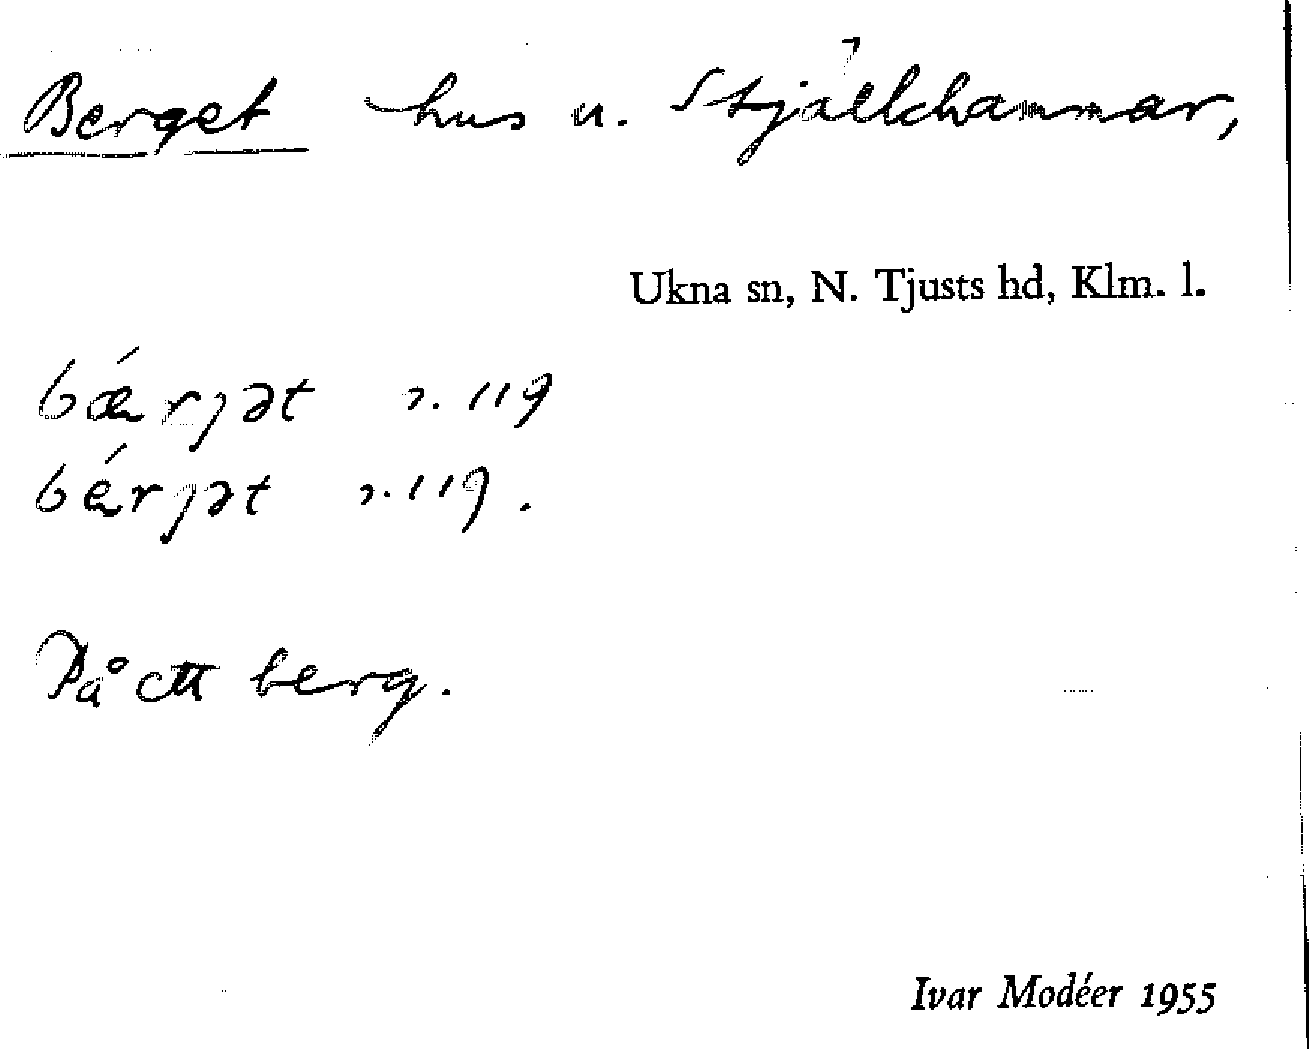 Berget hus u. Stjälkhammar,
Ukna sn, N. Tjusts hd, Klm. l.
bǽrjət s. 119
bérjət s. 119.
På ett berg.
Ivar Modéer 1955